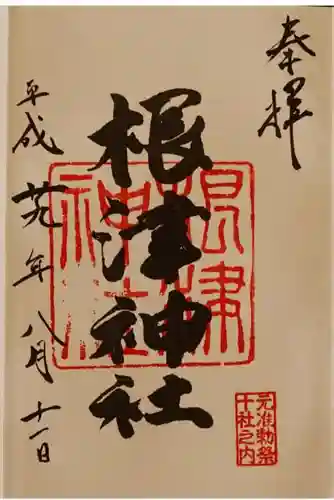 奉拝
根津神社
根津神社
元准勅祭
十社之内
平成廿九年八月十一日